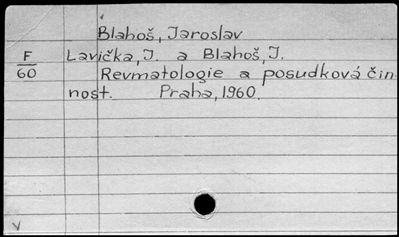 Blahoš, Jaroslav
F Lavička, J. a Blahoš, J.
60 Revmatologie a posudková čin
nost. Praha, 1960.
V